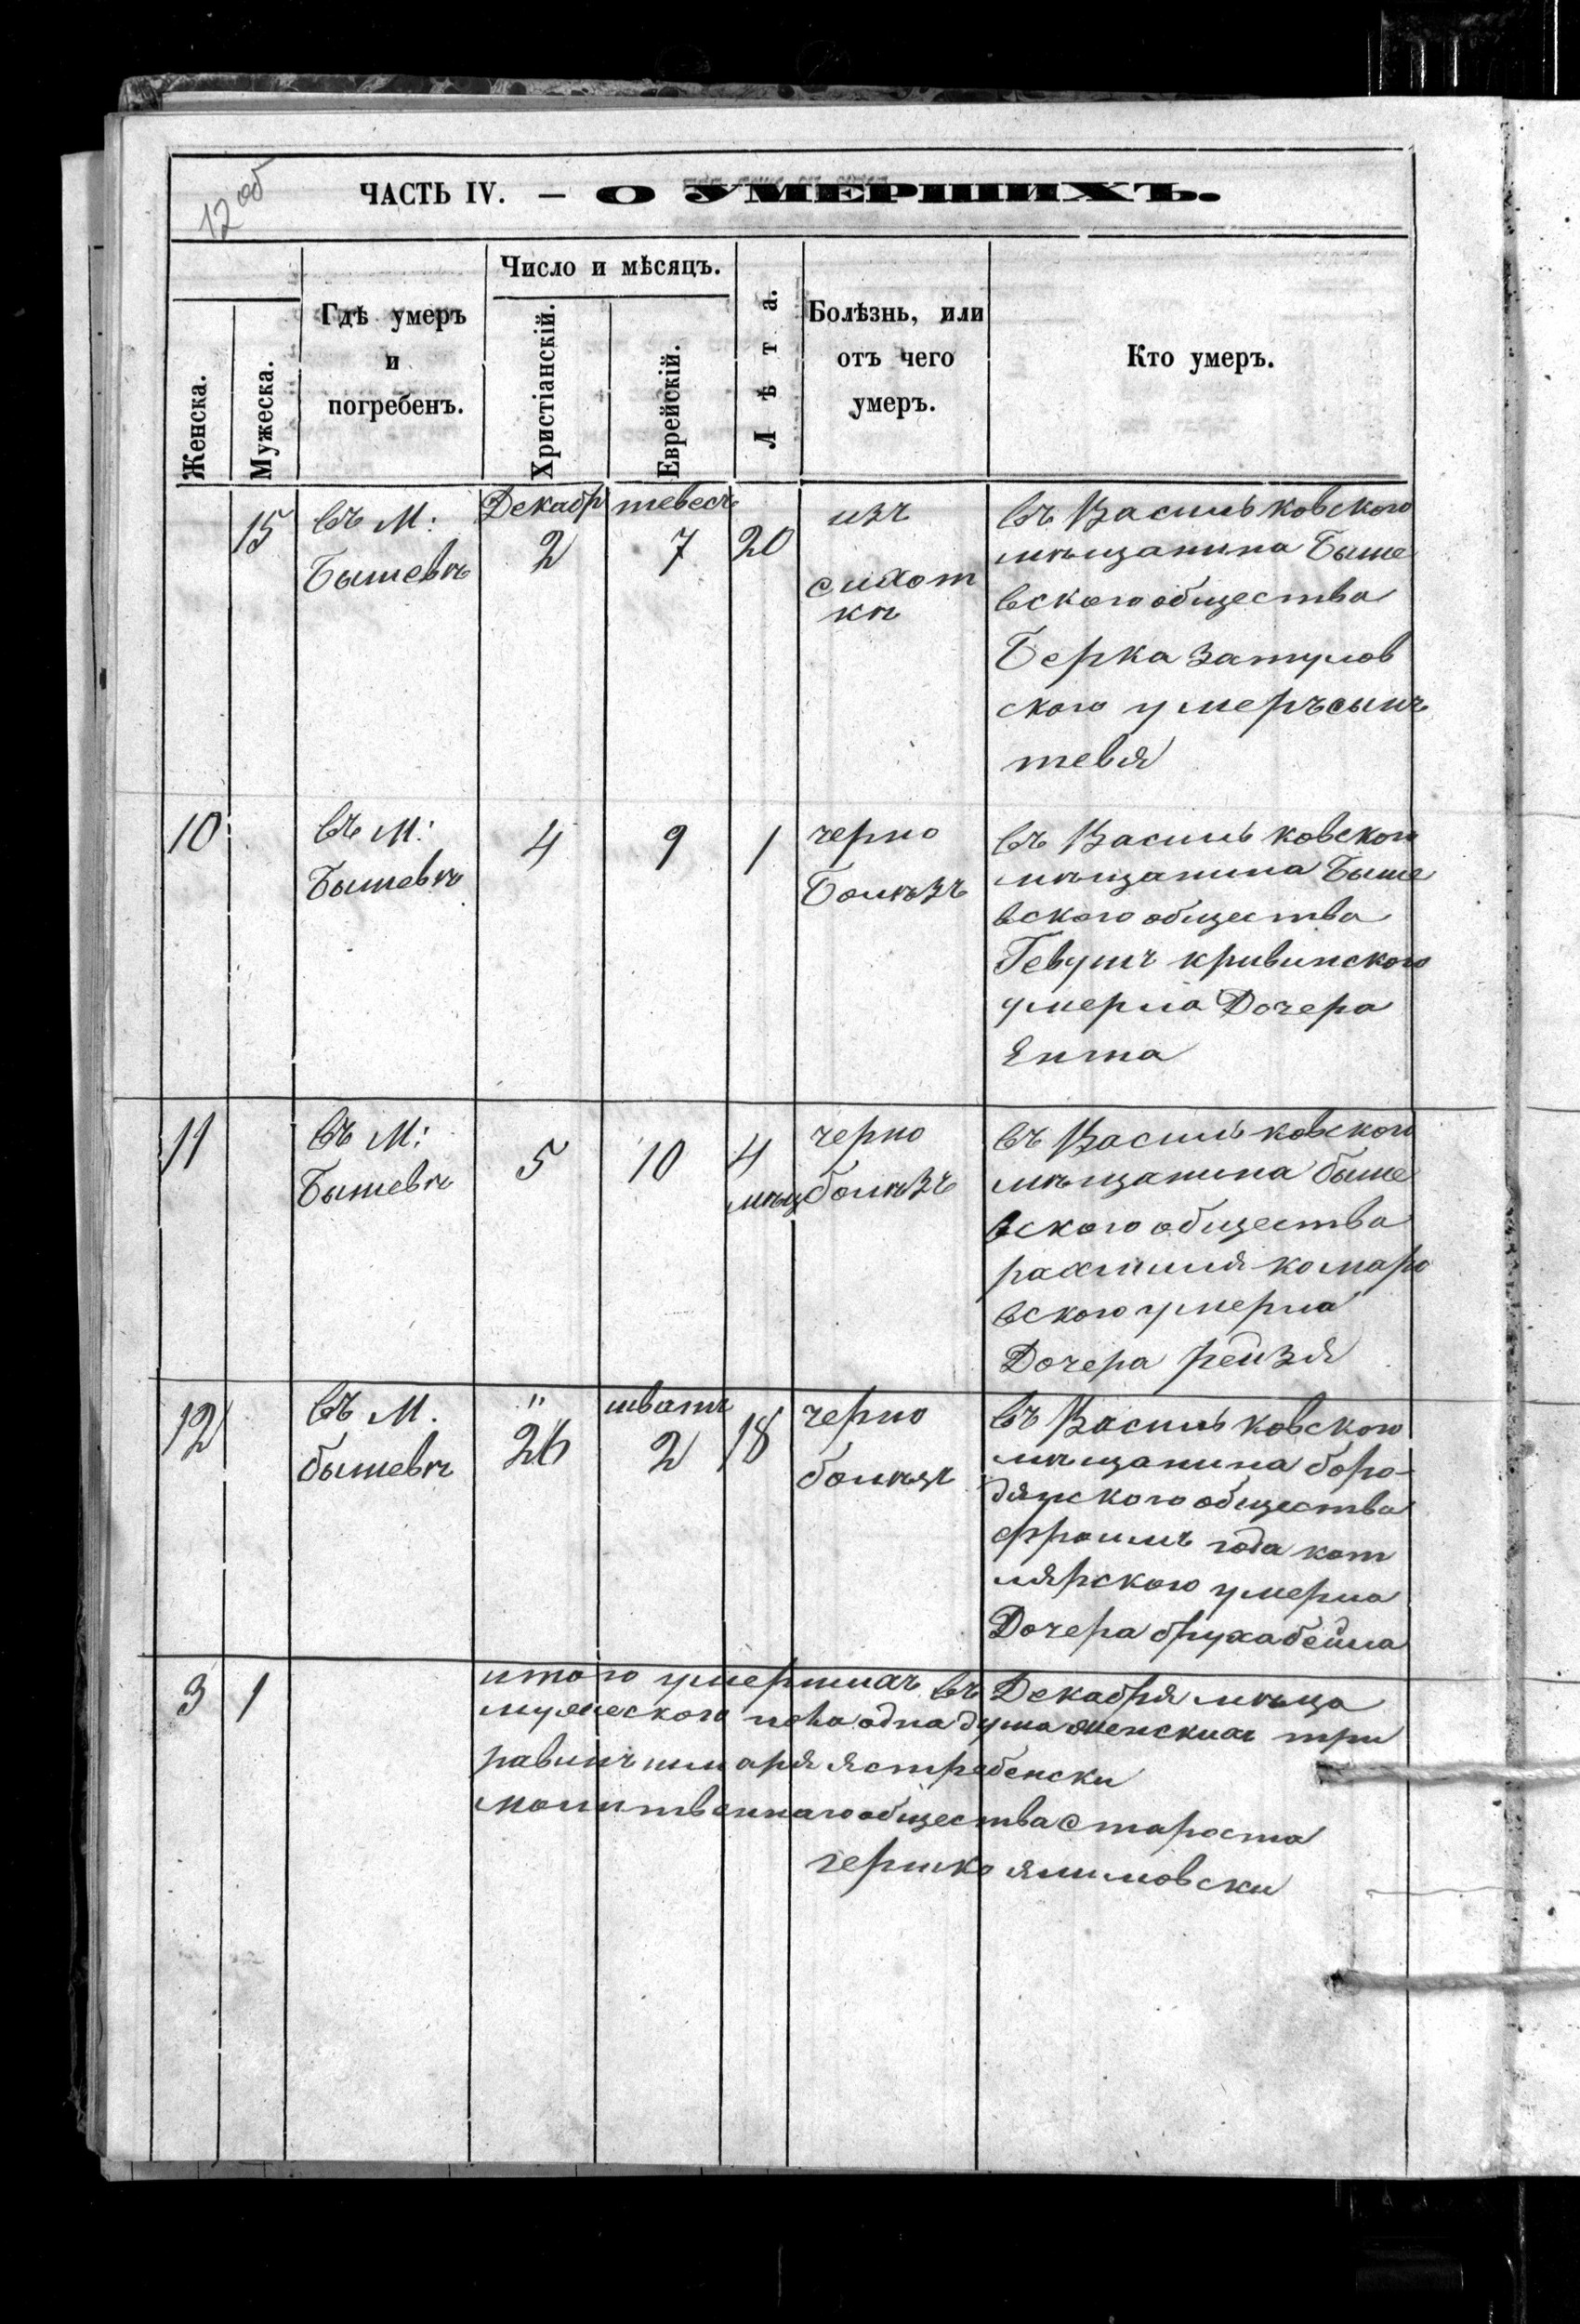 12 об
ЧАСТЬ IV. — О УМЕРШИХЪ.
Женска.
Мужеска.
Гдѣ умеръ
и
погребенъ.
Число и мѣсяцъ.
Христіанскій.
Еврейскій.
Лѣта.
Болѣзнь, или
отъ чего
умеръ.
Кто умеръ.
15
въ М:
Бышевѣ
Декабр
2
тевесъ
7
20
изъ
сихот
кѣ
въ Васильковского
мѣщанина Быше
вского общества
Берка Затулов
ского умеръ сынъ
тевя
10
въ М:
Бышевѣ
4
9
1
черно
Болѣзъ
въ Васильковского
мѣщанина Быше
вского общества
Гевушъ кривинского
умерла Дочера
Ента
11
въ М:
Бышевѣ
5
10
4
мѣц
черно
болѣзъ
въ Васильковского
мѣщанина быше
вского общества
рахмиля комаро
вского умерла
Дочера рейзя
12
въ М.
бышевѣ
"
26
шватъ
2
18
черно
болѣзъ
въ Васильковского
мѣщанина боро-
дянского общества
фроимъ года кот
лярского умерла
Дочера брухабейла
3
1
итого умершихъ въ Декабря мѣца
мужеского пола одна душа женскихъ три
равинъ шмаря ястребенски
молитвеннаго общества Староста
гершко ялиловски